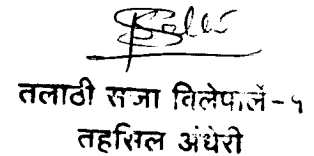 तलाठी सजा विलेपार्ले-५
तहसिल अंधेरी